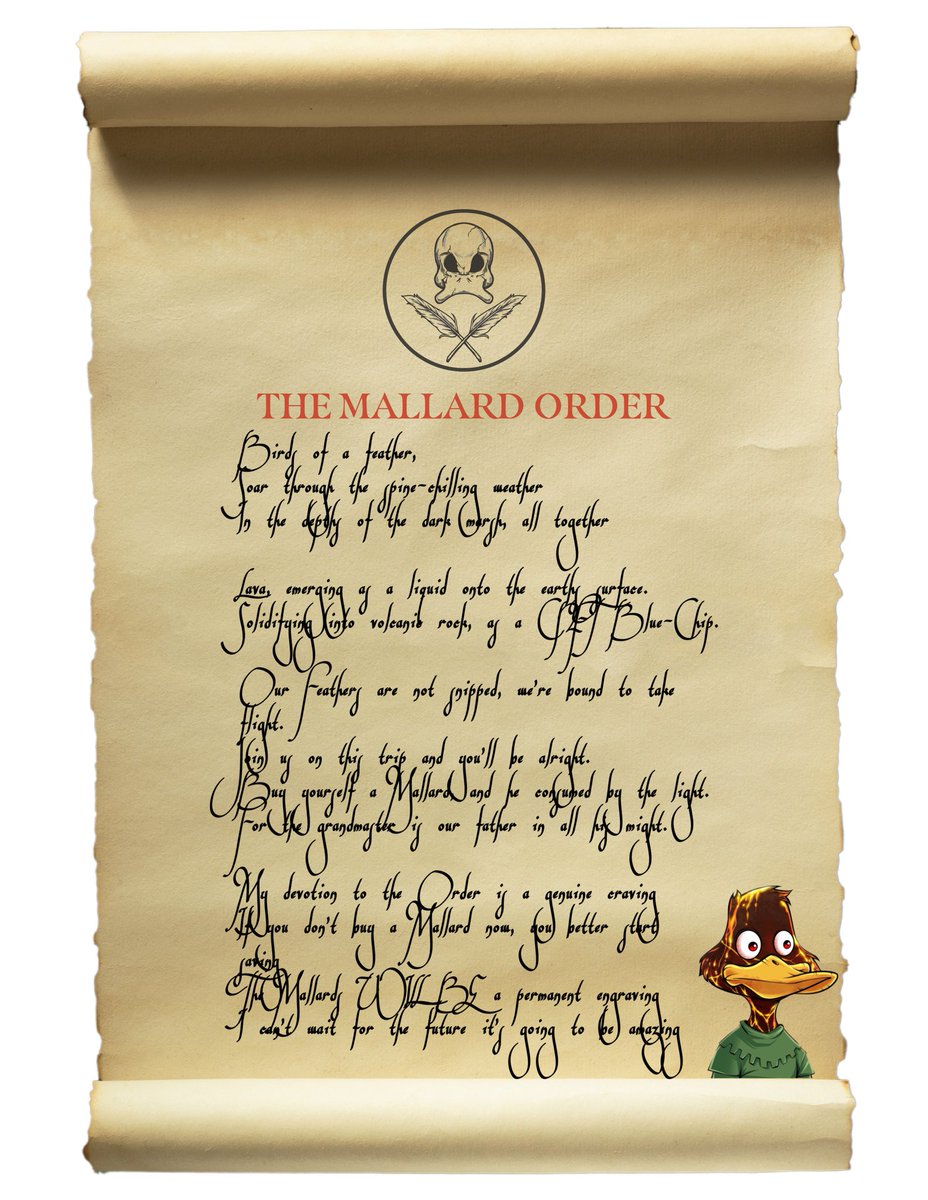 THE MALLARD ORDER
Birds of a feather,
Soar through the spine-chilling weather
In the depths of the dark marsh, all together
Lava, emerging as a liquid onto the earths surface.
Solidifying into volcanic rock, as a CFT Blue-Chip.
Our Feathers are not snipped, we're bound to take
flight.
Join us on this trip and you'll be alright.
Buy yourself a Mallard, and be consumed by the light.
For the grandmaster is our father in all his might.
My devotion to the Order is a genuine craving
If you don't buy a Mallard now, you better start
saving
The Mallards WILL BE a permanent engraving
I can't wait for the future it's going to be amazing